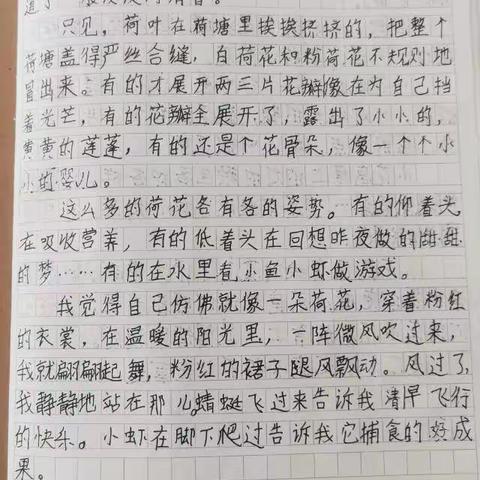 只见，荷叶在荷塘里挨挨挤挤的，把整个
荷塘盖得严丝合缝，白荷花和粉荷花不规则地
冒出来。有的才展开两三片花瓣像在为自己挡
着光芒，有的花瓣全展开了，露出了小小的，
黄黄的莲蓬，有的还是个花骨朵，像一个个小
小的婴儿。
这么多的荷花各有各的姿势。有的仰着头
在吸收营养，有的低着头在回想昨夜做的甜甜
的梦……有的在水里看小鱼小虾做游戏。
我觉得自己仿佛就像一朵荷花，穿着粉红
的衣裳，在温暖的阳光里，一阵微风吹过来，
我就翩翩起舞，粉红的裙子随风飘动。风过了，
我静静地站在那儿。蜻蜓飞过来告诉我清早飞行
的快乐。小虾在脚下爬过告诉我它捕食的好成
果。